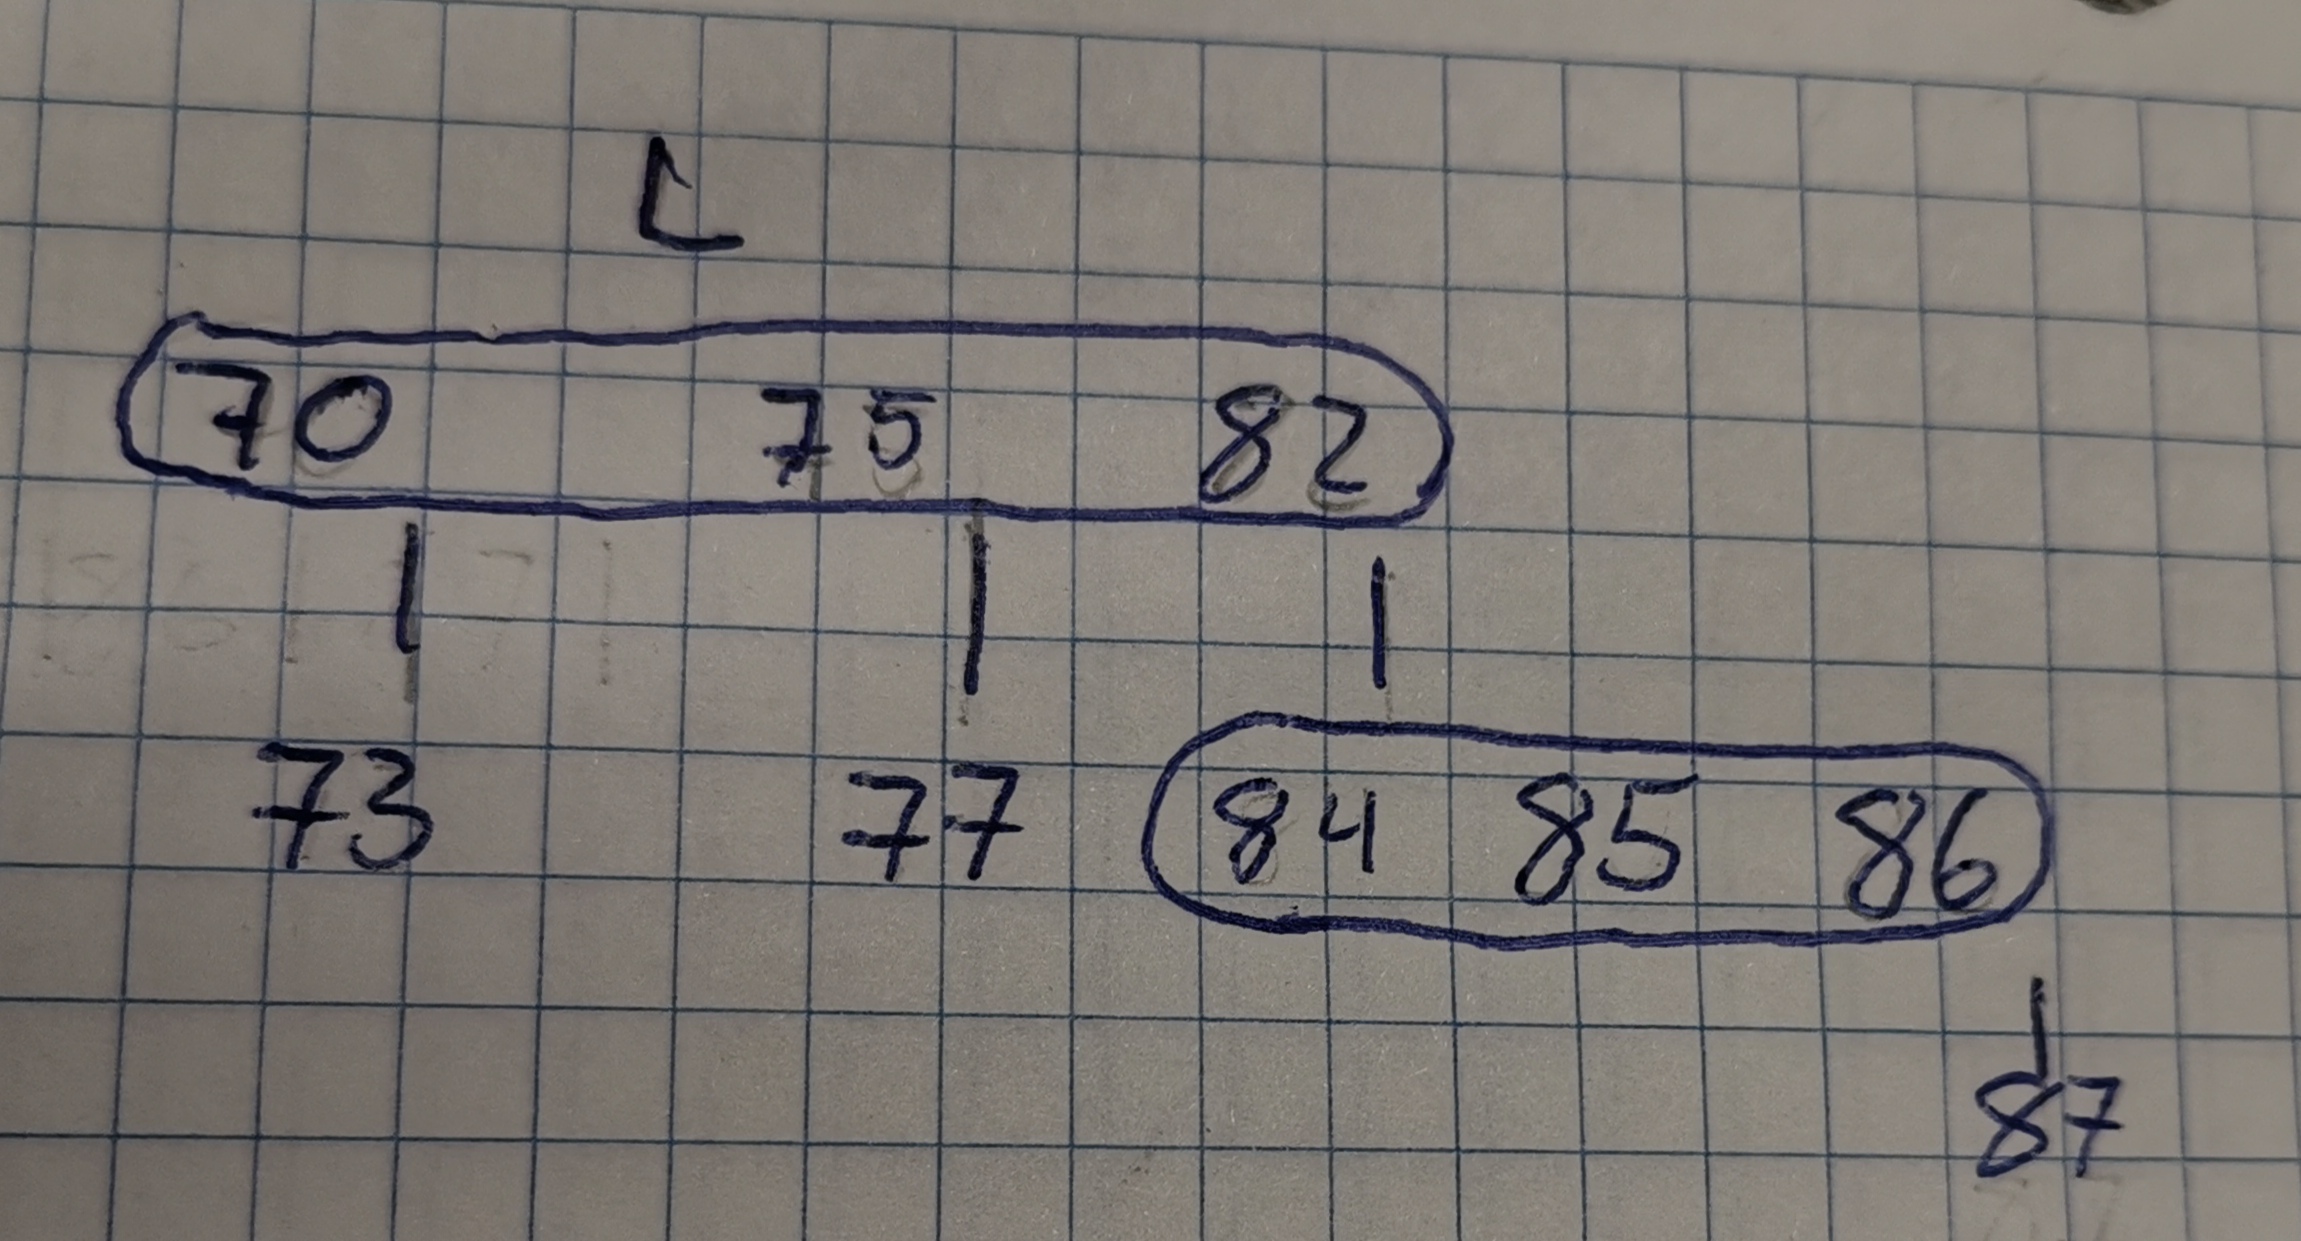 L
70 75 82
73 77 84 85 86
87